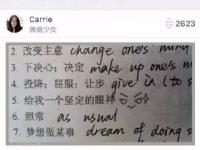 Carrie
奔跑少女
2623
2. 改变主意 change one's
3. 下决心；决定 make up one's m
4. 投降；屈服；让步 give in (to s
5. 给我一个坚定的眼神
6. 照常 as usual
7. 梦想做某事 dream of doing s